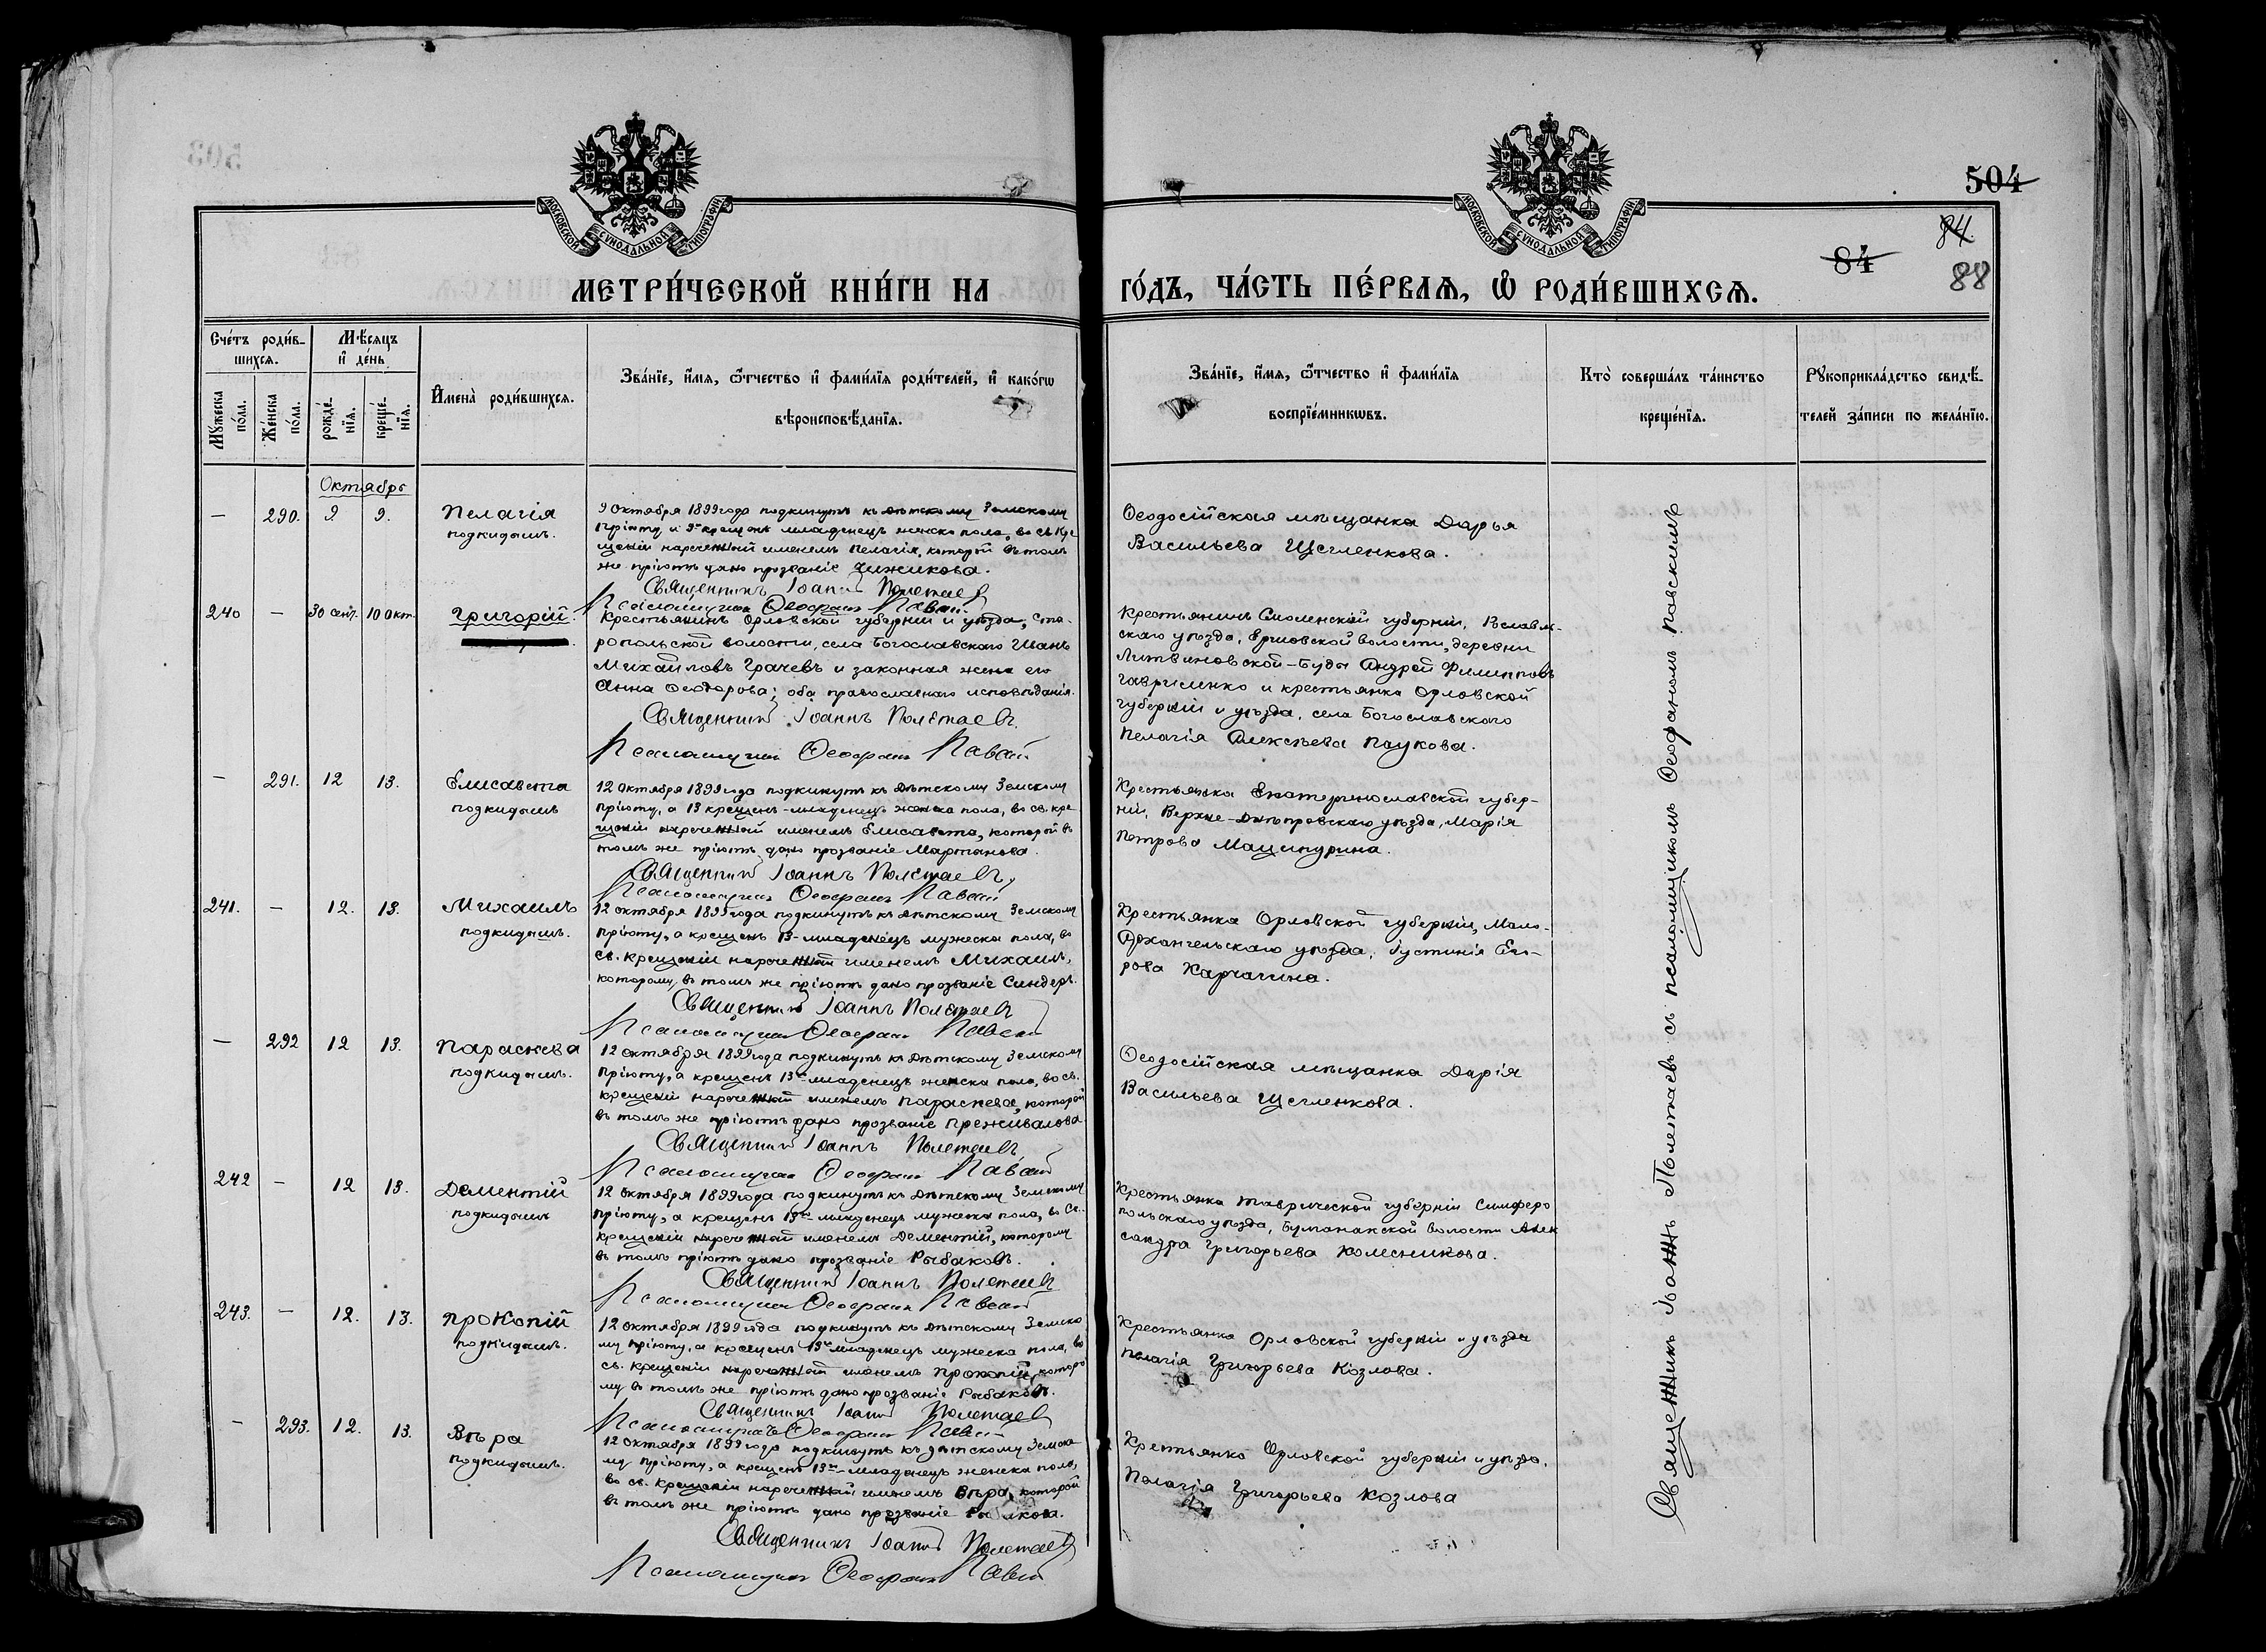 504
84
84.
88
МОСКОВСКОЙ СѴНОДАЛЬНОЙ ТИПОГРАФІИ
МОСКОВСКОЙ СѴНОДАЛЬНОЙ ТИПОГРАФІИ
МЕТРИ́ЧЕСКОЙ КНИ́ГИ НА ГО́ДЪ, ЧА́СТЬ ПЕ́РВАѦ, Ѡ҆ РОДИ́ВШИХСѦ.
Сче́тъ роди́в-
шихся.
Мꙋ́жеска по́ла.
Же́нска по́ла.
Мѣ́сяцъ
и҆ де́нь
рожде́-
нїя.
креще́-
нїя.
И҆мена̀ роди́вшихся.
Зва́нїе, и҆́мя, ѻ҆́тчество и҆ фами́лїя роди́телей, и҆ како́гѡ
вѣроисповѣ́данїя.
Зва́нїе, и҆́мя, ѻ҆́тчество и҆ фами́лїя
воспрїе́мникѡвъ.
Кто̀ соверша́лъ та́инство
креще́нїя.
Рꙋкоприкла́дство свидѣ́-
телей за́писи по жела́нїю.
Октябрь
— 290. 9. 9.
Пелагія
подкидышъ.
9 Октября 1899 года подкинутъ къ дѣтскому Земскому
пріюту, и 9го крещенъ младенецъ женска пола, во св. кре
щеніи нареченный именемъ Пелагія, которой въ томъ
же пріютѣ дано прозваніе Чижикова.
Священникъ Іоаннъ Полетаевъ
Псаломщикъ Ѳеофанъ Павскій
Ѳеодосійская мѣщанка Дарья
Васильева Щегленкова.
240 — 30 сент. 10 окт.
Григорій.
Крестьянинъ Орловской губерніи и уѣзда, Ста-
ропольской волости, села Богословскаго Иванъ
Михаиловъ Грачевъ и законная жена его
Анна Ѳеодорова; оба православнаго исповѣданія.
Священникъ Іоаннъ Полетаевъ.
Псаломщикъ Ѳеофанъ Павскій
Крестьянинъ Смоленской губерніи, Рославль-
скаго уѣзда, Ершовской волости, деревни
Литвиновской-Буды Андрей Филипповъ
Гавриленко и крестьянка Орловской
губерніи и уѣзда, села Богословского
Пелагія Алексѣева Паукова.
— 291. 12 13.
Елисавета
подкидышъ
12 Октября 1899 года подкинутъ къ дѣтскому Земскому
пріюту, а 13 крещенъ - младенецъ женска пола, во св. кре
щеніи нареченный именемъ Елисавета, которой въ
томъ же пріютѣ дано прозваніе Мартанова.
Священникъ Іоаннъ Полетаевъ,
Псаломщикъ Ѳеофанъ Павскій
Крестьянка Екатеринославской губер-
ніи, Верхне-Днѣпровскаго уѣзда, Марія
Петрова Мацупурина.
241. — 12. 13.
Михаилъ
подкидышъ.
12 октября 1899 года подкинутъ къ дѣтскому Земскому
пріюту, а крещенъ 13 - младенецъ мужеска пола, во
св. крещеніи нареченный именемъ Михаилъ,
которому въ томъ же пріютѣ дано прозваніе Синдеръ.
Священникъ Іоаннъ Полетаевъ
Псаломщикъ Ѳеофанъ Павскій
Крестьянка Орловской губерніи, Мало-
Архангельскаго уѣзда, Іустинія Его-
рова Карчагина.
— 292 12 13.
Параскева
подкидышъ.
12 октября 1899 года подкинутъ къ дѣтскому Земскому
пріюту, а крещенъ 13го младенецъ женска пола, во св.
крещеніи нареченный именемъ Параскева, которой
въ томъ же пріютѣ дано прозваніе Преживалова
Священникъ Іоаннъ Полетаевъ,
Псаломщикъ Ѳеофанъ Павскій
Ѳеодосійская мѣщанка Дарія
Васильева Щегленкова.
242 — 12 13.
Дементій
подкидышъ
12 октября 1899 года подкинутъ къ дѣтскому Земскому
пріюту, а крещенъ 13го младенецъ мужеска пола, во св.
крещеніи нареченный именемъ Дементій, которому
въ томъ пріютѣ дано прозваніе Рыбаковъ.
Священникъ Іоаннъ Полетаевъ
Псаломщикъ Ѳеофанъ Павскій
Крестьянка Таврической губерніи Симферо
польскаго уѣзда, Булганакской волости Алек
сандра Григорьева Колесникова.
243. — 12. 13.
Прокопій
подкидышъ.
12 октября 1899 года подкинутъ къ дѣтскому Земско
му пріюту, а крещенъ 13го младенецъ мужеска пола, во
св. крещеніи нареченный именемъ Прокопій, которо
му въ томъ же пріютѣ дано прозваніе Рыбаковъ.
Священникъ Іоаннъ Полетаевъ
Псаломщикъ Ѳеофанъ Павскій
Крестьянка Орловской губерніи и уѣзда
Пелагія Григорьева Козлова.
— 293. 12. 13.
Вѣра
подкидышъ.
12 октября 1899 года подкинутъ къ дѣтскому Земско
му пріюту, а крещенъ 13го младенецъ женска пола,
во св. крещеніи нареченный именемъ Вѣра, которой
въ томъ же пріютѣ дано прозваніе
Священникъ Іоаннъ Полетаевъ
Псаломщикъ Ѳеофанъ Павскій
Крестьянка Орловской губерніи и уѣзда,
Пелагія Григорьева Козлова
Священникъ Іоаннъ Полетаевъ съ псаломщикомъ Ѳеофаномъ Павскимъ